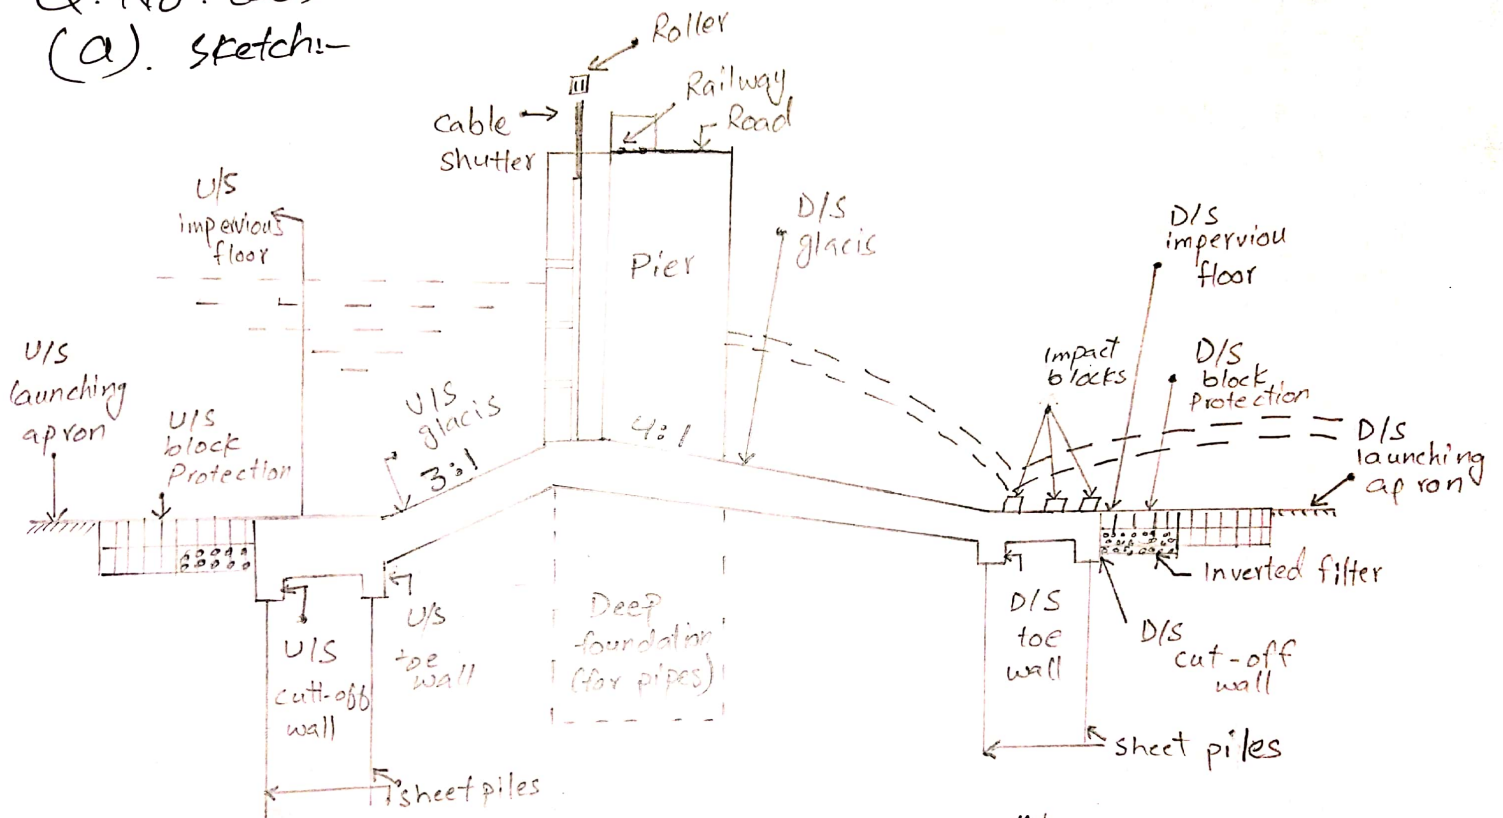 (a). sketch:-
Roller
Railway
Road
Cable
shutter
U/S
impervious
floor
D/S
glacis
D/S
imperviou
floor
Pier
U/S
launching
apron
U/S
block
Protection
U/S
glacis
3:1
4:1
Impact
blocks
D/S
block
Protection
D/S
launching
apron
Inverted filter
U/S
cutt-off
wall
U/S
toe
wall
Deep
foundation
(for pipes)
D/S
toe
wall
D/S
cut-off
wall
sheet piles
sheet piles